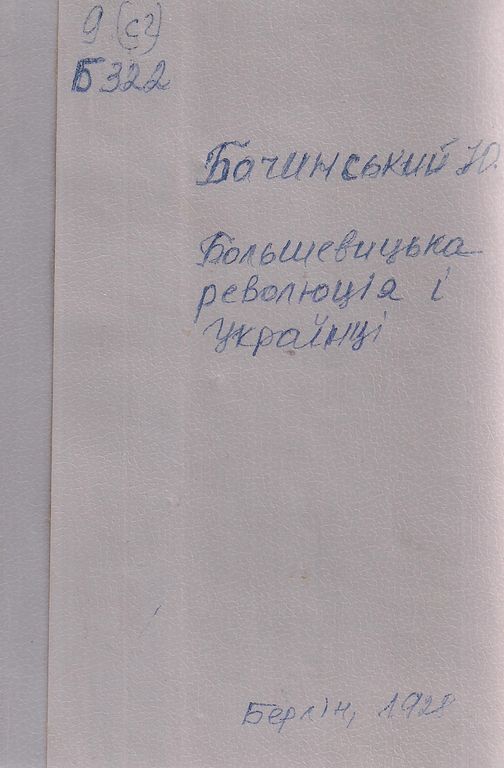 9 (с2)
Б322
Бачинський Ю.
Большевицька
революція і
Українці
Берлін, 1928